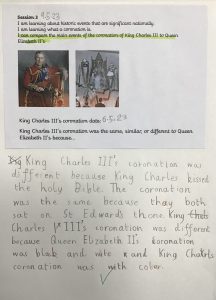 Session 3
9.5.23
I am learning about historic events that are significant nationally.
I am learning what a coronation is.
I can compare the main events of the coronation of King Charles III to Queen
Elizabeth II's
King Charles III's coronation date: 6.5.23
King Charles III's coronation was the same, similar, or different to Queen
Elizabeth II's because...
King Charles III's coronation was
different because King Charles kissed
the holy Bible. The coronation
was the same because they both
sat on St Edward's throne. King
Charles III's coronation was different
because Queen Elizabeth II's coronation
was black and wite and King Charles
coronation was with coler.